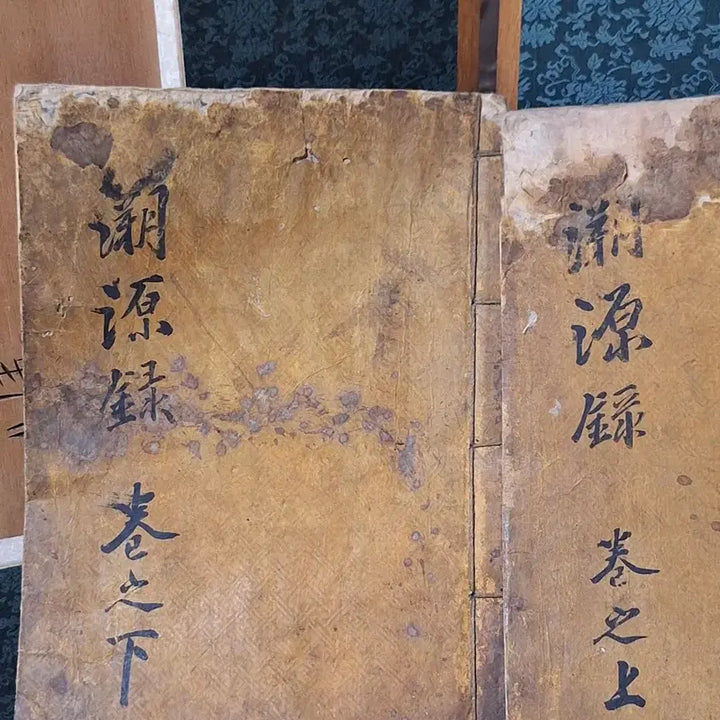 溯源録
卷之上
溯源録
卷之下